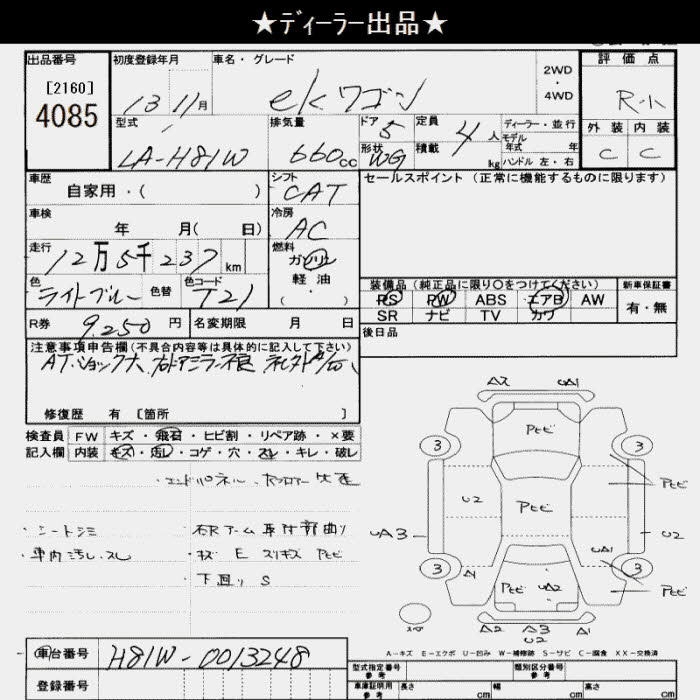 ★ディーラー出品★
出品番号
[2160]
4085
初度登録年月
13 11月
車名・グレード
ekワゴン
2WD
・
4WD
評価点
R-小
型式
LA-H81W
排気量
660cc
ドア 5
形状 WG
定員 4人
積載 kg
ディーラー・並行
モデル年式 年
ハンドル 左・右
外装 内装
C C
車歴
自家用・( )
シフト
CAT
セールスポイント (正常に機能するものに限ります)
車検
年 月( 日)
冷房
AC
走行
12万5千237km
燃料
ガソリン
軽油
( ・ )
色
ライトブルー
色替
色コード
T21
装備品 (純正品に限り○をつけてください)
PS PW ABS エアB AW
SR ナビ TV カワ
新車保証書
有・無
R券
9.250円
名変期限 月 日
後日品
注意事項申告欄(不具合内容等は具体的に記入して下さい)
ATショック大、右ドアミラー不良
修復歴 有 [箇所 ]
検査員
記入欄
FW キズ・飛石・ヒビ割・リペア跡・×要
内装 キズ・汚し・コゲ・穴・スレ・キレ・破レ
・シートシミ
・車内汚レ、スレ
・エンドパネル、
取付部曲り
・キズ E スリキズ Pヒビ
・下回り S
A2 UA1
Pヒビ
3 3
U2 Pヒビ Pヒビ
UA3 U2
UA1
3 A1 3
Pヒビ UA2 Pヒビ
スペア
A2 A3 A1
U2
A-キズ E-エクボ U-凹み W-補修跡 S-サビ C-腐食 XX-交換済
車台番号
H81W-0013248
登録番号
型式指定番号
参考
類別区分番号
参考
車庫証明用
参考
長さ cm 幅 cm 高さ cm